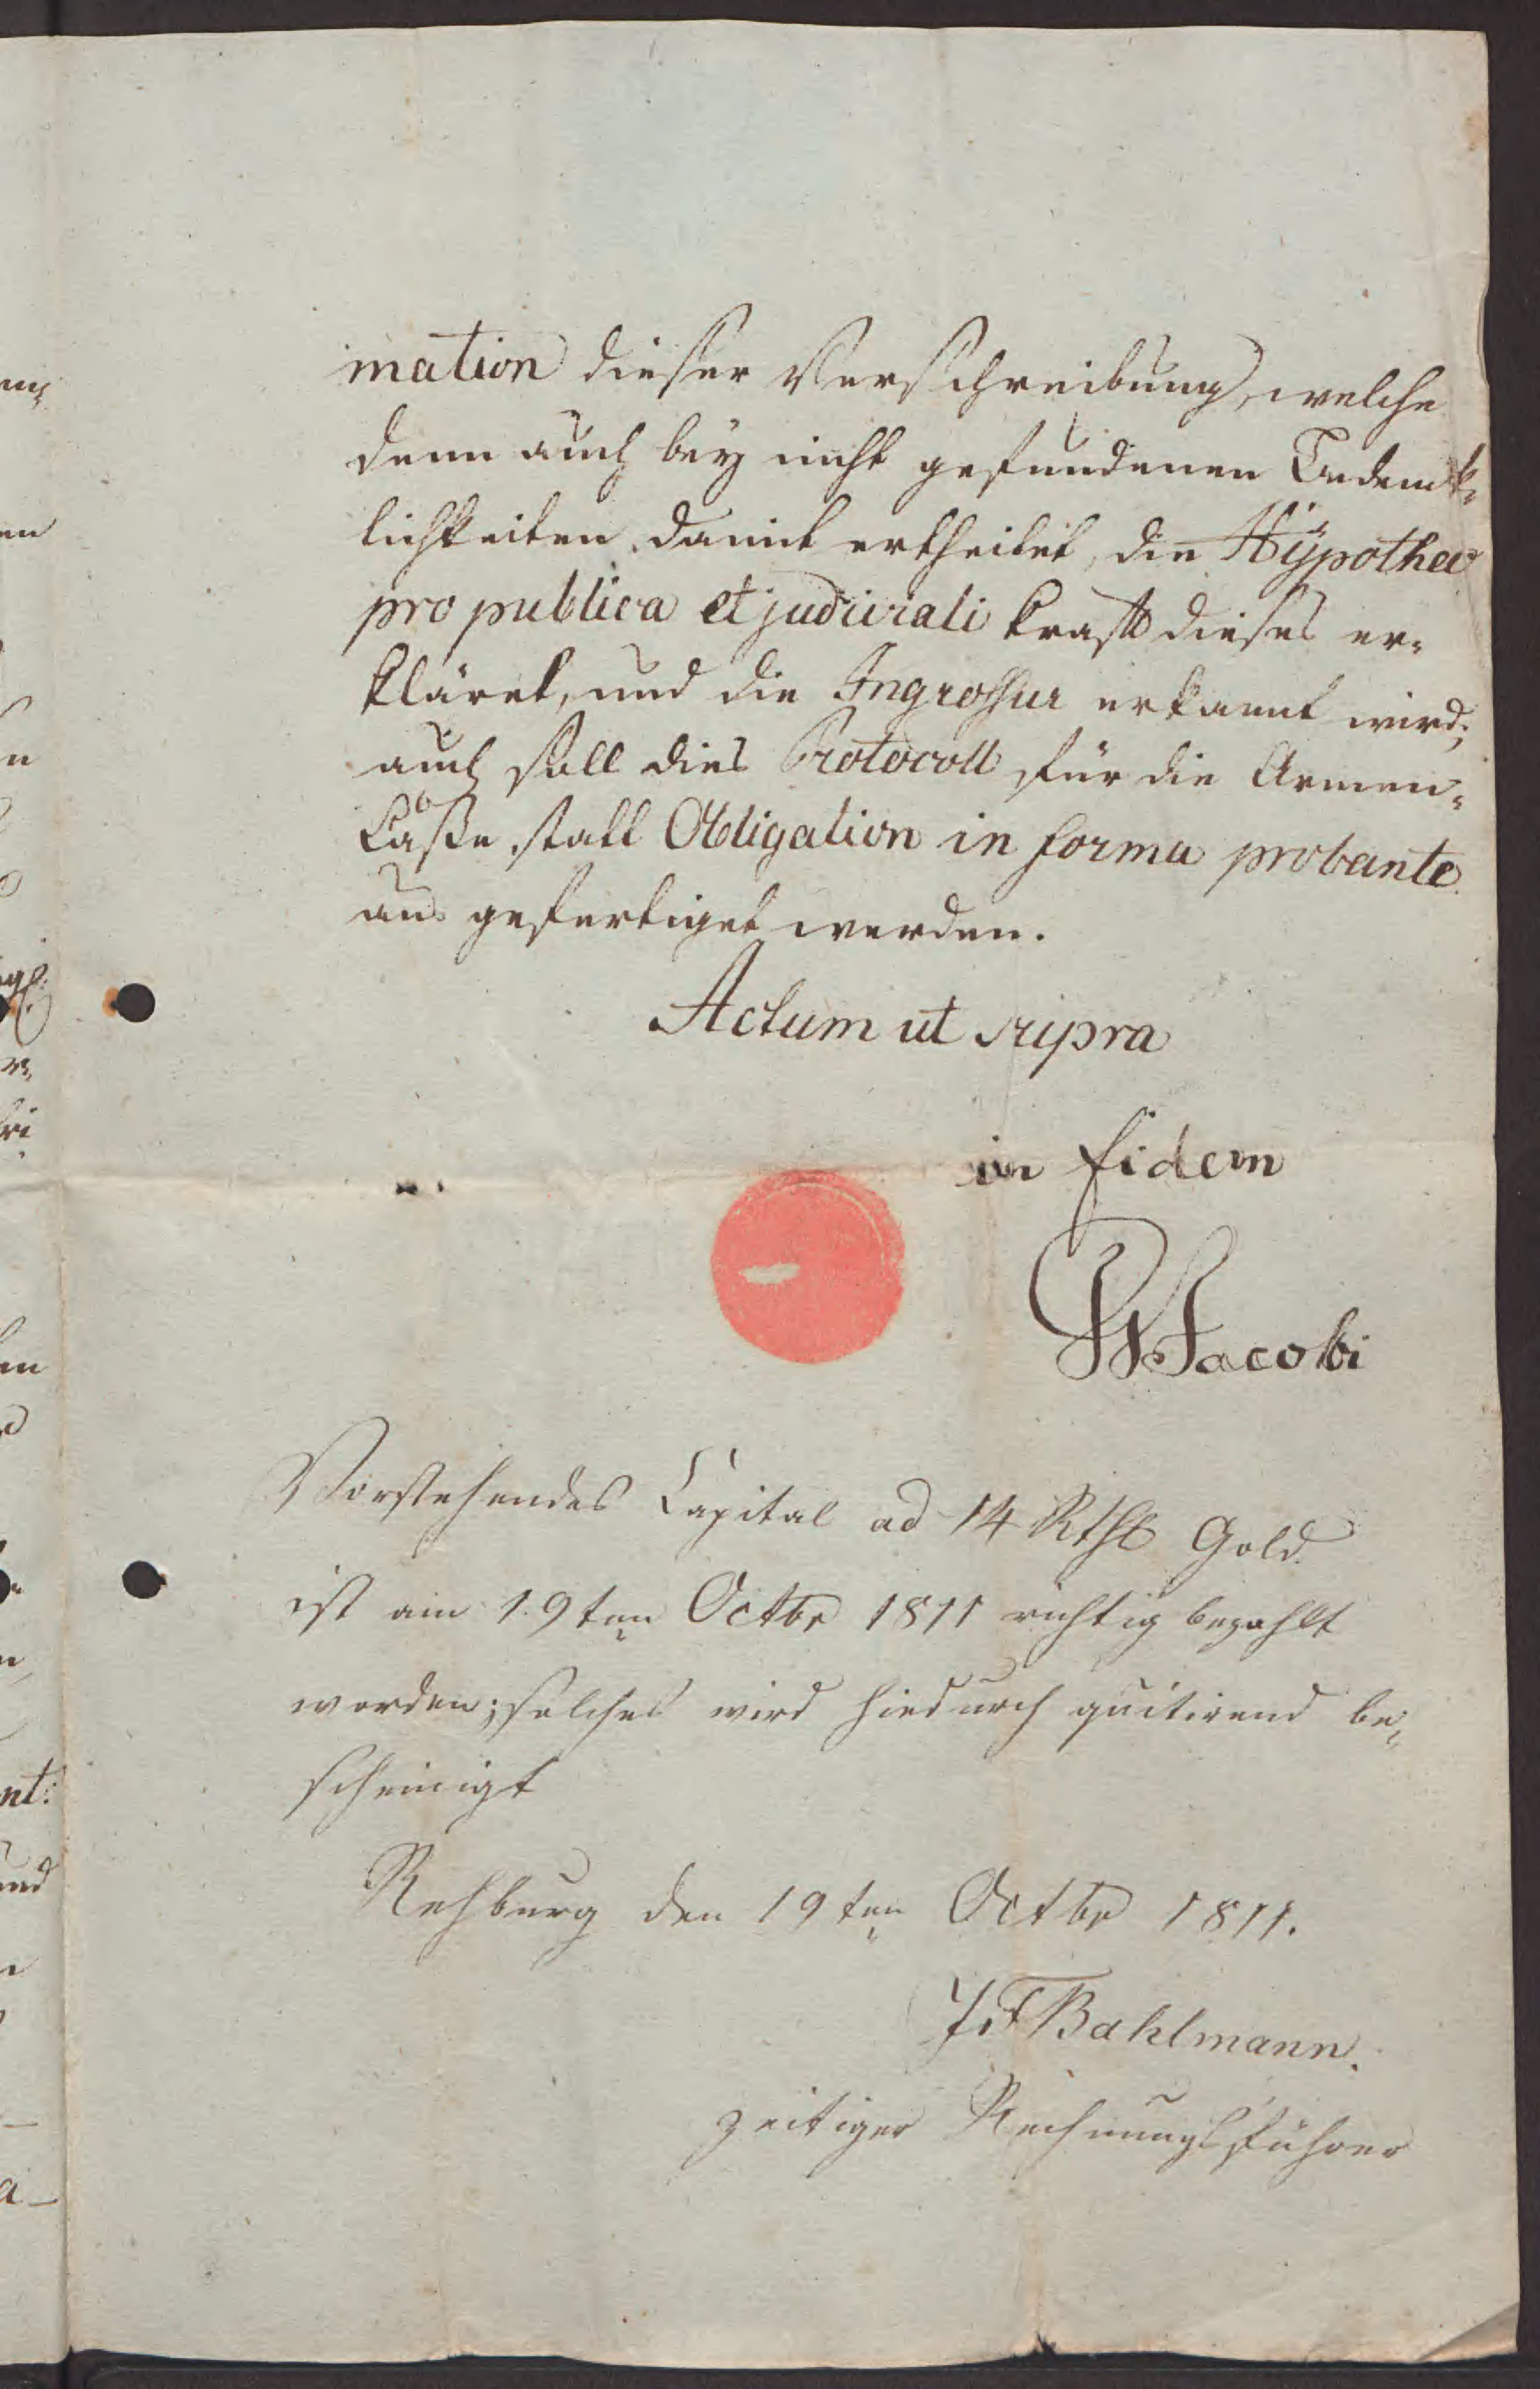 mation dieser Verschreibung, welche
denn auch bey nicht gefundenen Bedenk-
lichkeiten damit ertheilet, die Hÿpothec
pro publica et judiciali kraft dieses er-
kläret, und die Ingrossur erkannt wird;
auch soll dies Protocoll für die Armen-
Caße statt Obligation in forma probante
aus gefertiget werden.
Actum ut supra
in fidem
Jacobi
Vorstehendes Capital ad 14 Rthl Gold
ist am 19ten Octbr 1811 richtig bezahlt
worden; solches wird hiedurch quitirend be-
scheinigt
Rehburg den 19ten Octbr 1811.
J F Bahlmann.
zeitiger Rechnungsführer